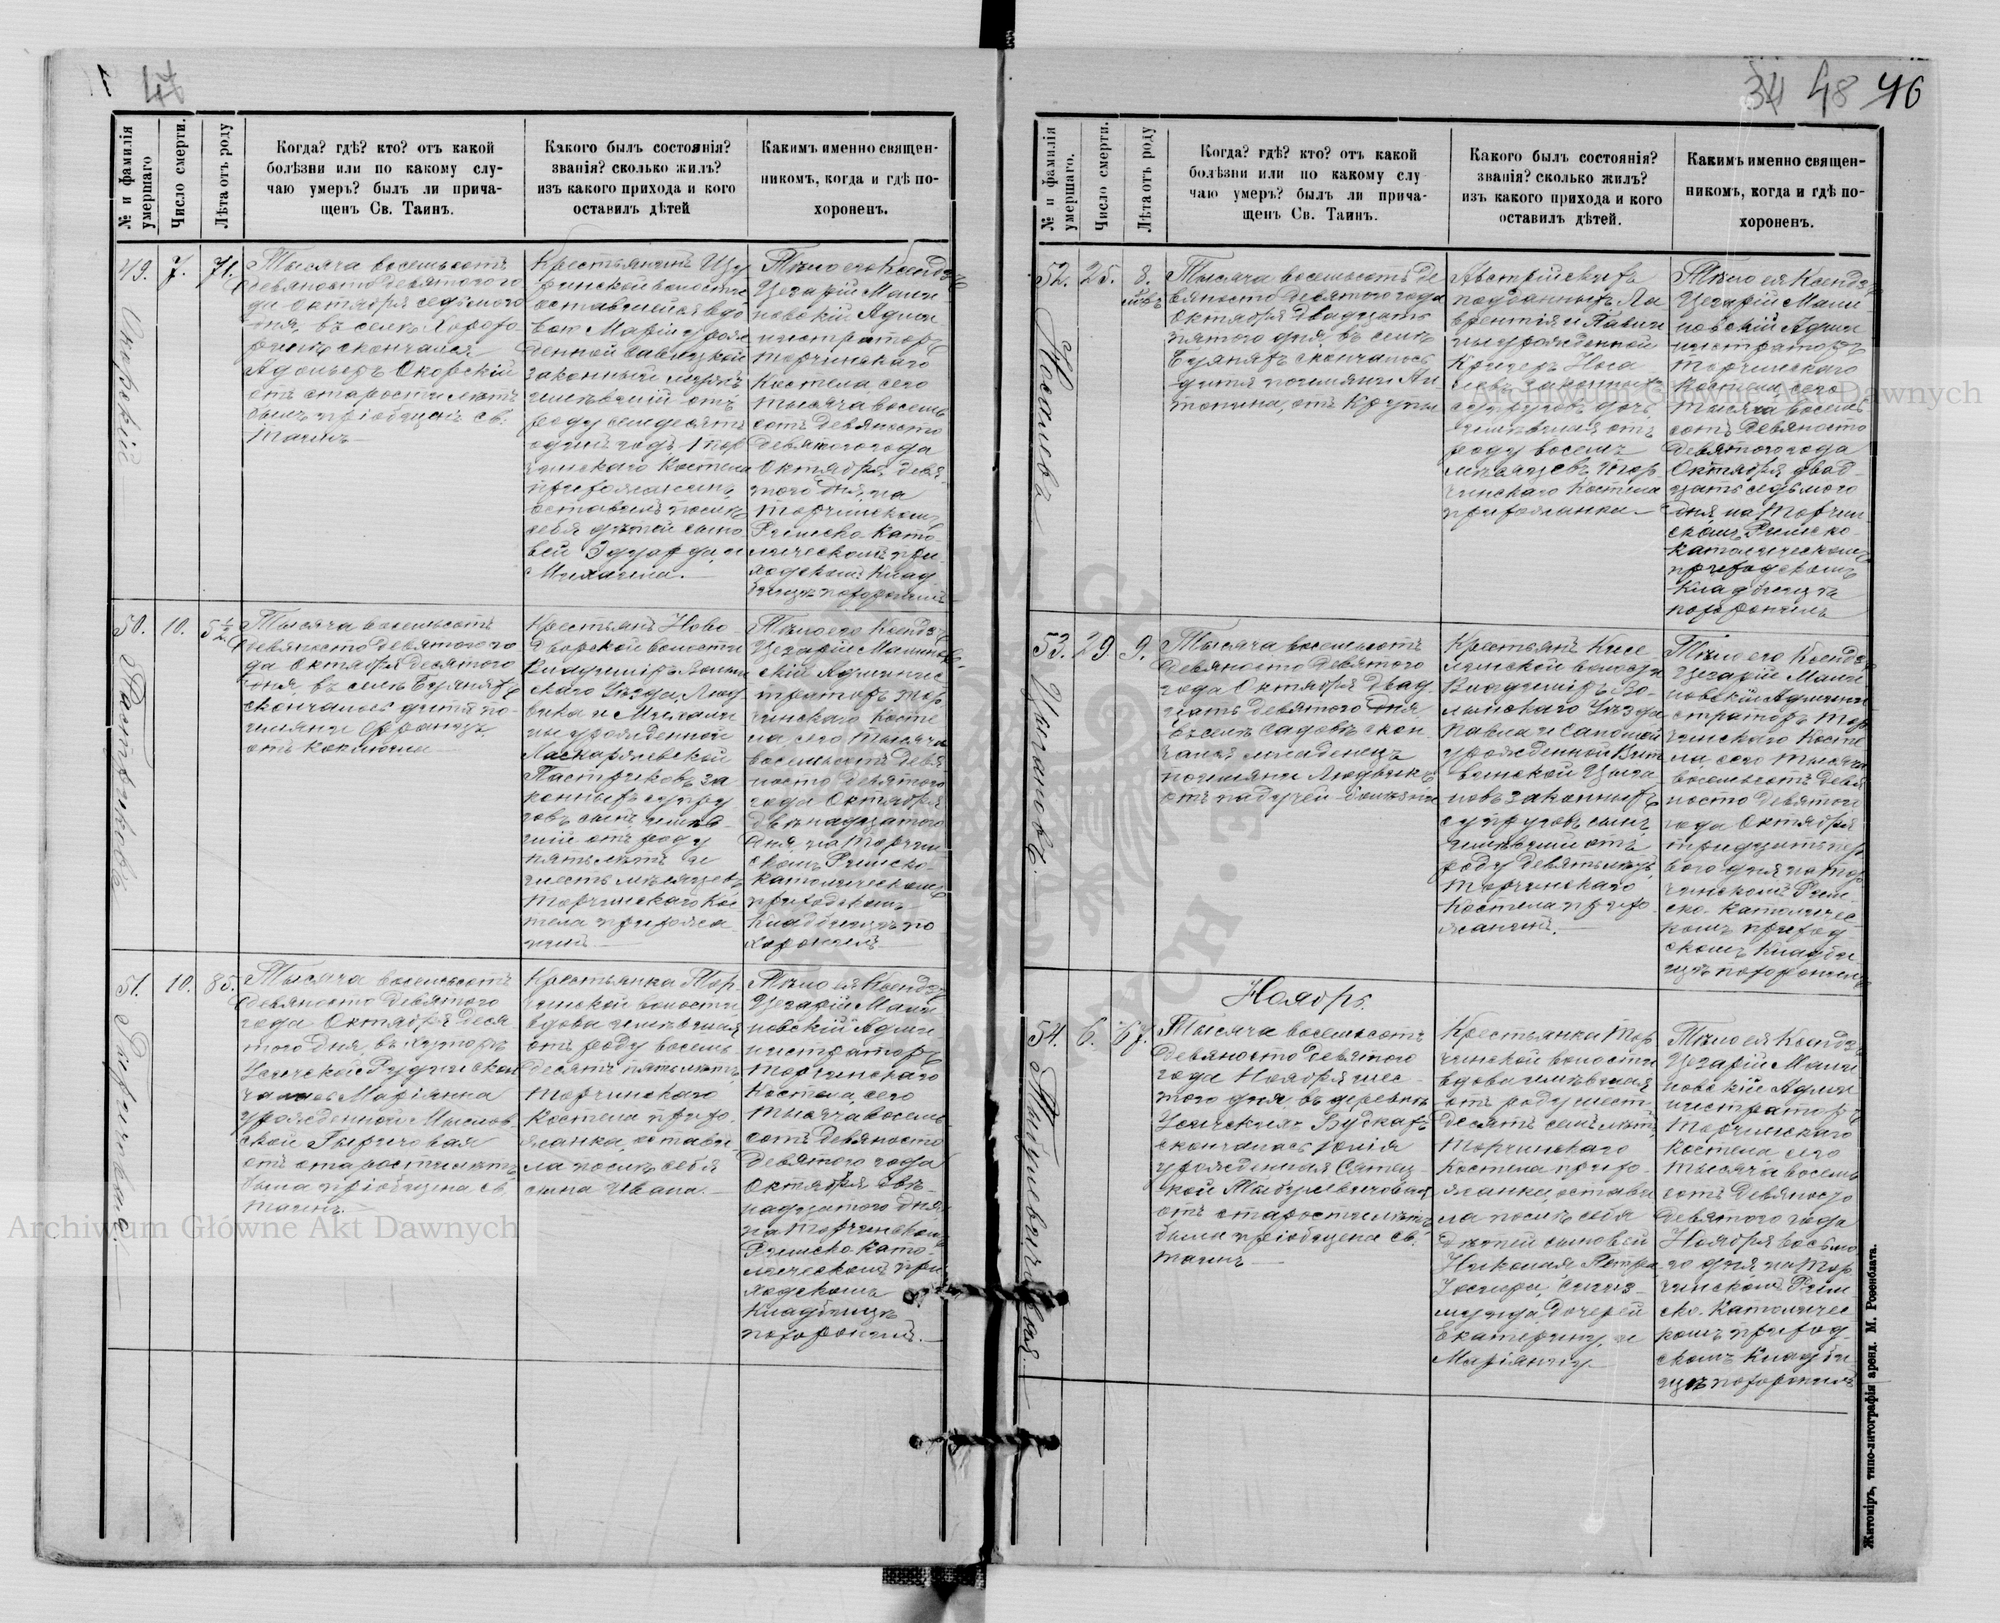 47
34 48 46
№ и фамилія умершаго
Число смерти.
Лѣта отъ роду
Когда? гдѣ? кто? отъ какой
болѣзни или по какому слу-
чаю умеръ? былъ ли прича-
щенъ Св. Таинъ.
Какого былъ состоянія?
званія? сколько жилъ?
изъ какого прихода и кого
оставилъ дѣтей
Какимъ именно священ-
никомъ, когда и гдѣ по-
хороненъ.
49. Окорскій
7.
71.
Тысяча восемьсотъ
девяносто девятого го
да Октября седьмого
дня, въ селѣ Хорохо-
ринѣ скончался
Адольфъ Окорскій
отъ старости лѣтъ
былъ пріобщенъ Св.
Таинъ—
Крестьянинъ Щу
ринской волости
оставшейся вдо
вою Маріи урож
денной
законный мужъ
имѣвшій отъ
роду семдесятъ
одинъ годъ, Тор
чинскаго Костела
прихожанинъ,
оставилъ послѣ
себя дѣтей сыно
вей Эдуарда и
Михаила.—
Тѣло его Ксендзъ
Цезарій Мали
новскій Адми
нистраторъ
Торчинскаго
Костела сего
тысяча восемь
сотъ девяносто
девятого года
Октября девя
того дня, на
Торчинскомъ
Римско-Като-
лическомъ при
ходскомъ клад
бищѣ похоронилъ
50. Пастриковъ
10.
5½
Тысяча восемьсотъ
девяносто девятого го
да Октября десятого
дня, въ селѣ Буянахъ
скончалось дитя по
имяни Францъ
отъ коклюша—
Крестьянъ Ново-
Дворской волости
Владимiръ-Волын
скаго Уѣзда, Люд
вика и Михали
ны урожденной
Пастриковъ за
конныхъ супру
говъ сынъ имѣв
шій отъ роду
пять лѣтъ и
шесть мѣсяцевъ
Торчинскаго Кос
тела прихожа
нинъ—
Тѣло его Ксендзъ
Цезарій Малинов
скій Админис
траторъ Тор
чинскаго Косте
ла, сего тысяча
восемьсотъ девя
носто девятого
года Октября
двѣнадцатого
дня, на Торчин
скомъ Римско-
Католическомъ
приходскомъ
кладбищѣ по
хоронилъ—
51.
10.
85.
Тысяча восемьсотъ
девяносто девятого
года Октября деся
того дня, въ хуторѣ
Усичской Рудни скон
чалась Маріянна
урожденной Мыслов
ской
отъ старости лѣтъ
была пріобщена Св.
Таинъ.—
Крестьянка Тор
чинской волости
вдова имѣвшая
отъ роду восемь
десятъ пять лѣтъ,
Торчинскаго
Костела прихо-
жанка, остави
ла послѣ себя
сына Ивана.—
Тѣло ея Ксендзъ
Цезарій Мали
новскій Адми
нистраторъ
Торчинскаго
Костела, сего
тысяча восемь
сотъ девяносто
девятого года
Октября двѣ
надцатого дня
на Торчинскомъ
Римско-Като-
лическомъ при
ходскомъ
кладбищѣ
похоронилъ.—
№ и фамилія умершаго.
Число смерти.
Лѣта отъ роду
Когда? гдѣ? кто? отъ какой
болѣзни или по какому слу
чаю умеръ? былъ ли прича-
щенъ Св. Таинъ.
Какого былъ состоянія?
званія? сколько жилъ?
изъ какого прихода и кого
оставилъ дѣтей.
Какимъ именно священ-
никомъ, когда и гдѣ по-
хороненъ.
52.
25.
8.
Тысяча восемьсотъ де
вяносто девятого года
Октября двадцать
пятого дня, въ селѣ
Буянахъ скончалось
дитя по имяни Ан
тонина, отъ крупы
Австрійскихъ
подданныхъ Ла
врентія и Павли
ны урожденной
законныхъ
супруговъ дочь,
имѣвшая отъ
роду восемь
мѣсяцевъ, Тор
чинскаго Костела
прихожанка—
Тѣло ея Ксендзъ
Цезарій Мали
новскій Адми
нистраторъ
Торчинскаго
Костела, сего
тысяча восемь
сотъ девяносто
девятого года
Октября двад-
цать седьмого
дня на Торчин
скомъ Римско-
Католическомъ
приходскомъ
кладбищѣ
похоронилъ
53. Цыгановъ.
29.
9.
Тысяча восемьсотъ
девяносто девятого
года Октября двад-
цать девятого дня,
въ селѣ Садовъ скон-
чался младенецъ
по имяни Людвикъ
отъ падучей болѣзни
Крестьянъ Кисе
линской волости
Владимiръ-Во-
лынскаго Уѣзда
Павла и
урожденной
Цыга
новъ законныхъ
супруговъ сынъ,
имѣвшій отъ
роду девять лѣтъ,
Торчинскаго
Костела прихо
жанинъ.—
Тѣло его Ксендзъ
Цезарій Мали
новскій Админи
страторъ Тор
чинскаго Косте
ла, сего тысяча
восемьсотъ девя
носто девятого
года Октября
тридцать пер
вого дня на Тор
чинскомъ Рим-
ско-Католичес
комъ приход
скомъ кладби
щѣ похоронилъ
Ноябрь.
54.
6.
67.
Тысяча восемьсотъ
девяносто девятого
года Ноября шес-
того дня, въ деревнѣ
Усичскихъ Будкахъ
скончалась Юлія
урожденная
отъ старости лѣтъ
была пріобщена Св.
Таинъ—
Крестьянка Тор
чинской волости
вдова имѣвшая
отъ роду шесть
десятъ семь лѣтъ,
Торчинскаго
Костела прихо-
жанка, остави
ла послѣ себя
дѣтей сыновей
Николая, Петра,
Іосифа,
дочерей
Екатерину и
Маріянну
Тѣло ея Ксендзъ
Цезарій Мали
новскій Адми
нистраторъ
Торчинскаго
Костела, сего
тысяча восемь
сотъ девяносто
девятого года
Ноября восьмо
го дня на Тор
чинскомъ Рим-
ско-Католичес
комъ приход
скомъ кладби
щѣ похоронилъ
Житомiръ, типо-литографія аренд. М. Розенблата.
Archiwum Główne Akt Dawnych
Archiwum Główne Akt Dawnych